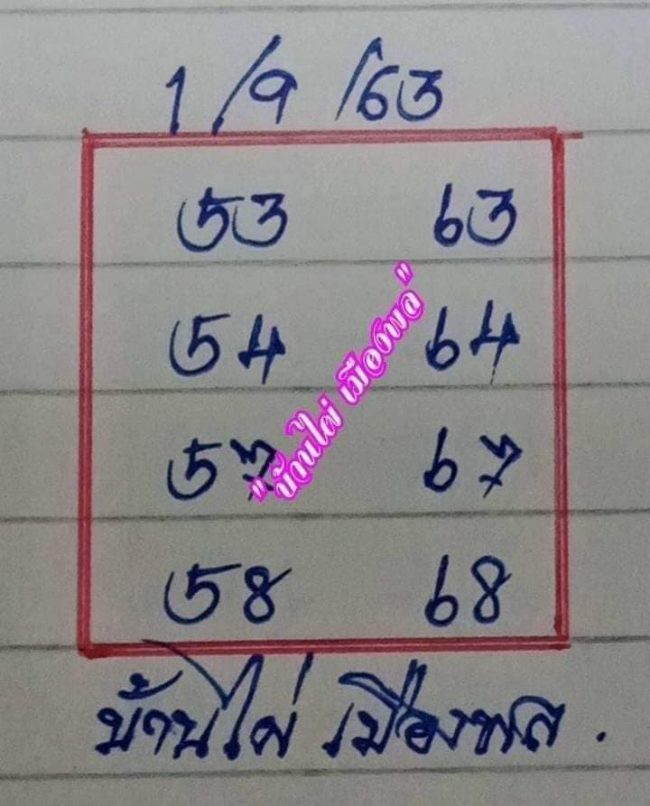 1/9/63
53 63
54 64
57 67
58 68
"บ้านไผ่ เมืองพล"
บ้านไผ่ เมืองพล.